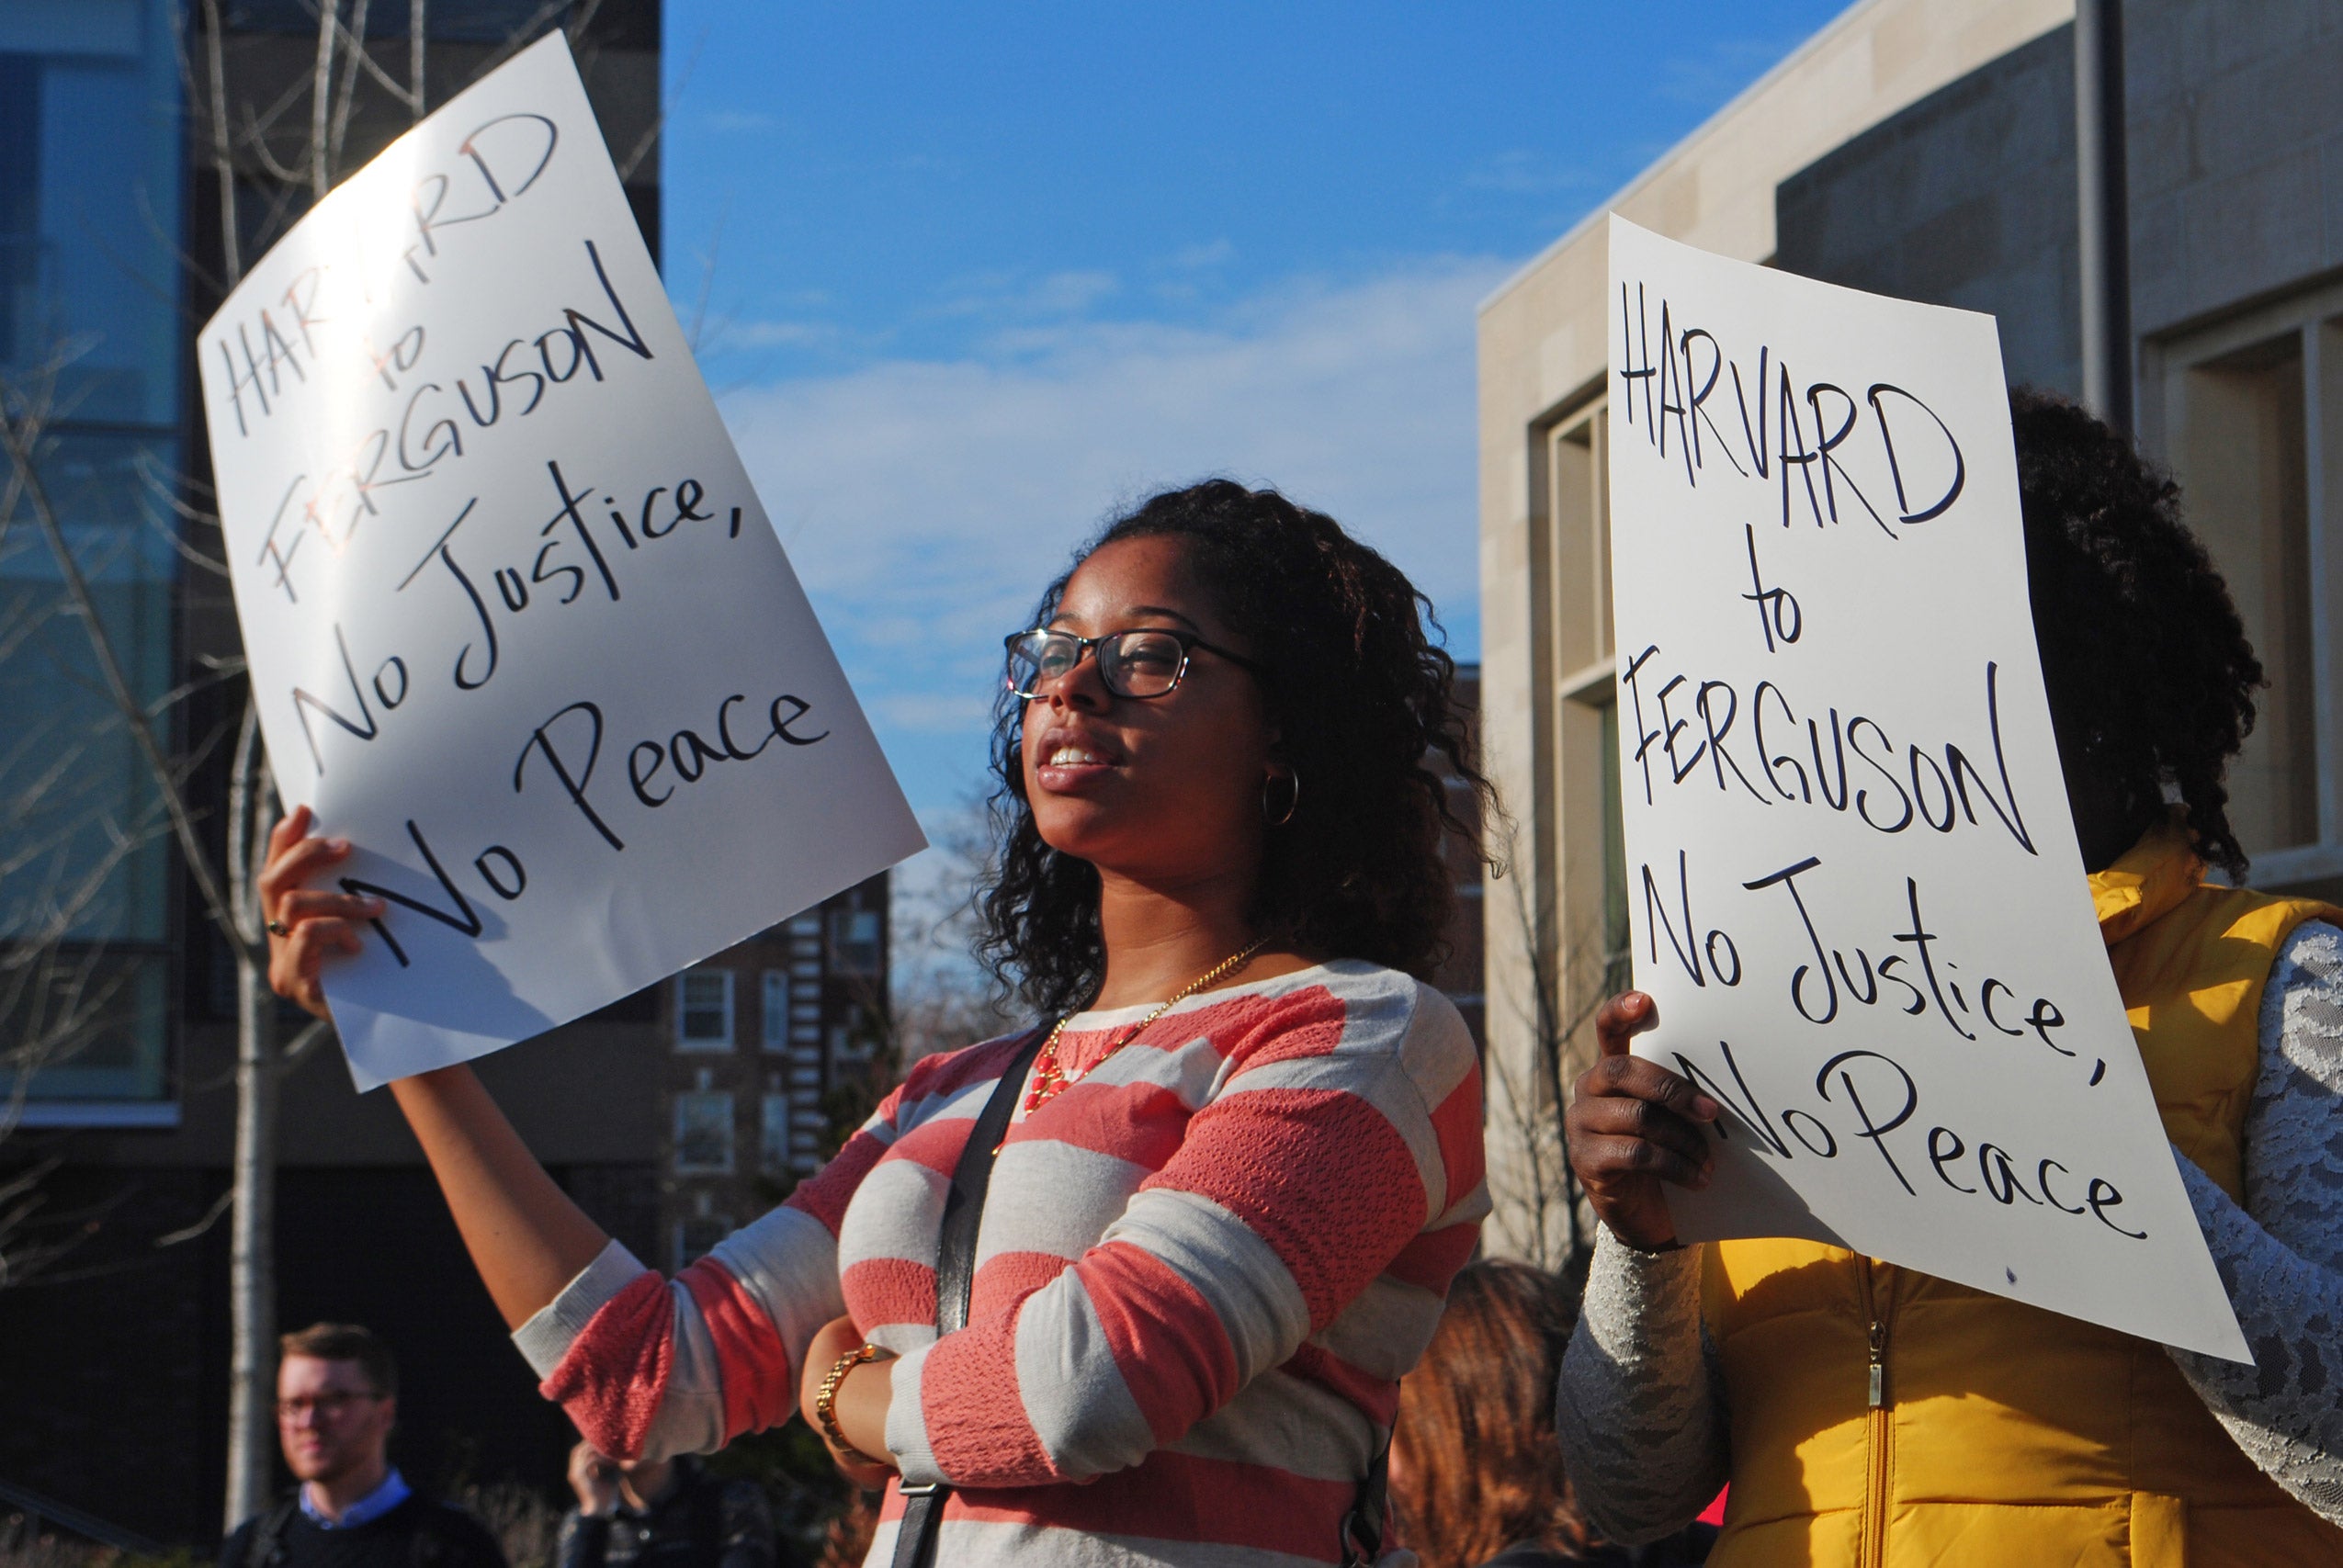 HARVARD
to
FERGUSON
No Justice,
No Peace
HARVARD
to
FERGUSON
No Justice,
No Peace